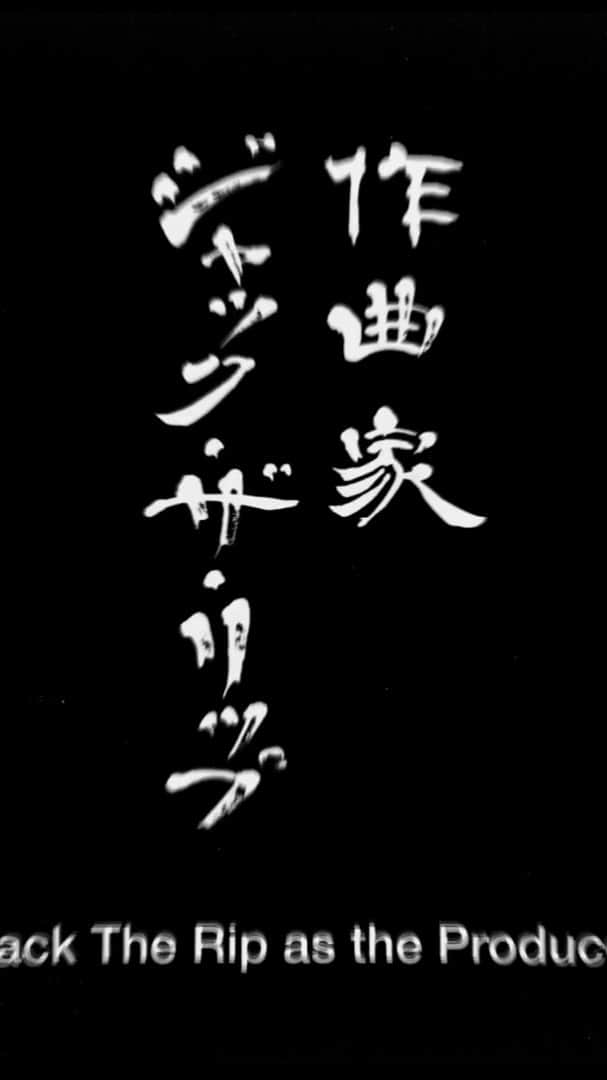 作曲家
ジャック・ザ・リップ
ack The Rip as the Produc